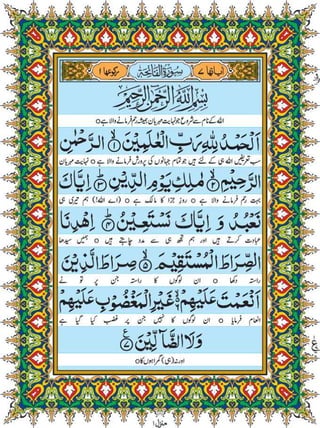 اٰیاتھا ٧ سُوْرَةُ الْفَاتِحَةِ رکوعھا ١
بِسْمِ اللّٰهِ الرَّحْمٰنِ الرَّحِیْمِ
اللہ کے نام سے شروع جو نہایت مہربان ہمیشہ رحم فرمانے والا ہے ○
اَلْحَمْدُ لِلّٰهِ رَبِّ الْعٰلَمِیْنَ ﴿١﴾ الرَّحْمٰنِ
سب تعریفیں اللہ ہی کے لئے ہیں جو تمام جہانوں کی پرورش فرمانے والا ہے ○ نہایت مہربان
الرَّحِیْمِ ﴿٢﴾ مٰلِكِ یَوْمِ الدِّیْنِ ﴿٣﴾ اِیَّاكَ
بہت رحم فرمانے والا ہے ○ روزِ جزا کا مالک ہے ○ (اے اللہ!) ہم تیری ہی
نَعْبُدُ وَ اِیَّاكَ نَسْتَعِیْنُ ﴿٤﴾ اِهْدِنَا
عبادت کرتے ہیں اور ہم تجھ ہی سے مدد چاہتے ہیں ○ ہمیں سیدھا
الصِّرَاطَ الْمُسْتَقِیْمَ ﴿٥﴾ صِرَاطَ الَّذِیْنَ
راستہ دکھا ○ ان لوگوں کا راستہ جن پر تو نے
اَنْعَمْتَ عَلَیْهِمْ ﴿٦﴾ غَیْرِ الْمَغْضُوْبِ عَلَیْهِمْ
انعام فرمایا ○ ان لوگوں کا نہیں جن پر غضب کیا گیا ہے
وَلَا الضَّآلِّیْنَ ﴿٧﴾
اور نہ (ہی) گمراہوں کا ○
منزل ١